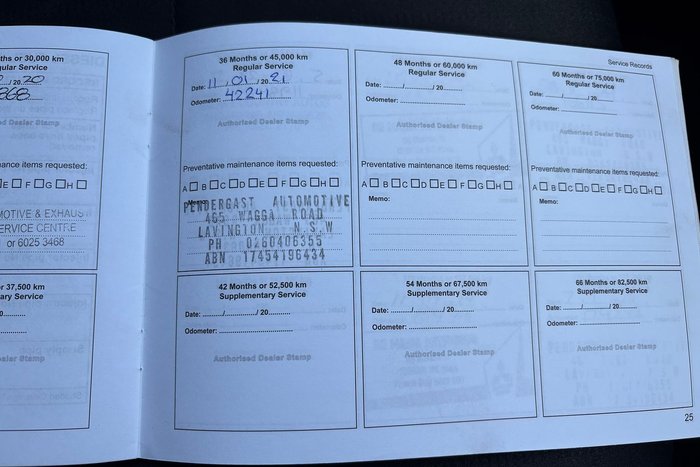 ths or 30,000 km
gular Service
/ 20 20
868
ed Dealer Stamp
ance items requested:
E F G H
MOTIVE & EXHAUST
ERVICE CENTRE
or 6025 3468
r 37,500 km
ary Service
ealer Stamp
Service Records
36 Months or 45,000 km
Regular Service
Date: 11 / 01 / 20 21
Odometer: 42241
Authorised Dealer Stamp
Preventative maintenance items requested:
A B C D E F G H
Memo:
PENDERGAST AUTOMOTIVE
465 WAGGA ROAD
LAVINGTON N.S.W
PH 0260406355
ABN 17454196434
48 Months or 60,000 km
Regular Service
Date: ........./........./ 20.........
Odometer: ..............................
Authorised Dealer Stamp
Preventative maintenance items requested:
A B C D E F G H
Memo:
60 Months or 75,000 km
Regular Service
Date: ........./........./ 20.........
Odometer: ..............................
Authorised Dealer Stamp
Preventative maintenance items requested:
A B C D E F G H
Memo:
42 Months or 52,500 km
Supplementary Service
Date: ........./........./ 20.........
Odometer: ..............................
Authorised Dealer Stamp
54 Months or 67,500 km
Supplementary Service
Date: ........./........./ 20.........
Odometer: ..............................
Authorised Dealer Stamp
66 Months or 82,500 km
Supplementary Service
Date: ........./........./ 20.........
Odometer: ..............................
Authorised Dealer Stamp
25